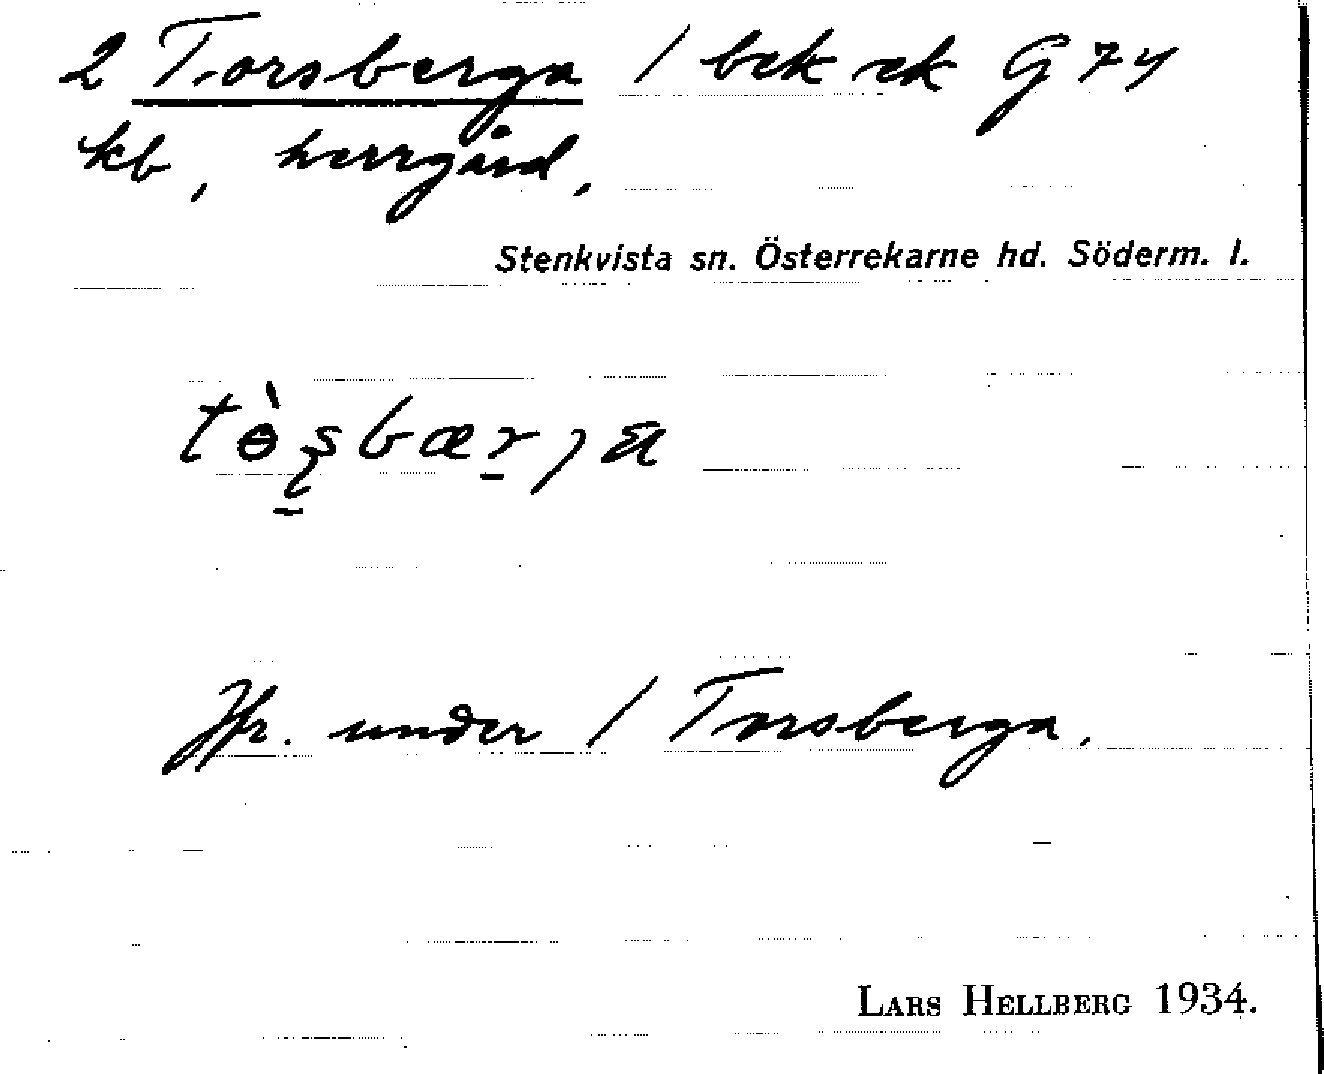 2 Torsberga / bek ek G 74
kb, herrgård,
Stenkvista sn. Österrekarne hd. Söderm. l.
tɵ̀ʂbær̠,a
Jfr. under / Torsberga.
LARS HELLBERG 1934.